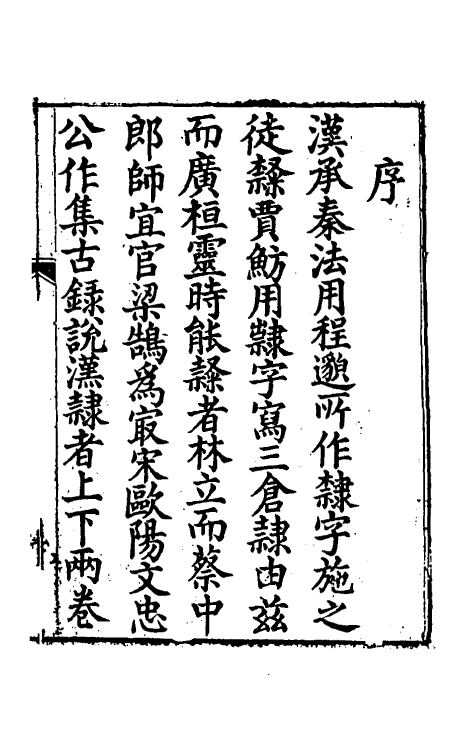 序
漢承秦法用程邈所作隸字施之
徒隸賈魴用隸字寫三倉隸由兹
而廣桓靈時能隸者林立而蔡中
郎師宜官梁鵠爲㝡宋歐陽文忠
公作集古録說漢隸者上下兩卷